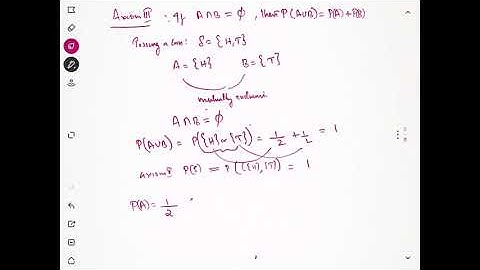 Axiom III : If A∩B = ϕ, then P(A∪B) = P(A)+P(B)
Tossing a coin: S = {H,T}
A = {H} B = {T}
mutually exclusive
A∩B = ϕ
P(A∪B) = P({H} or {T}) = 1/2 + 1/2 = 1
axiom II P(S) = P({H},{T}) = 1
P(A) = 1/2